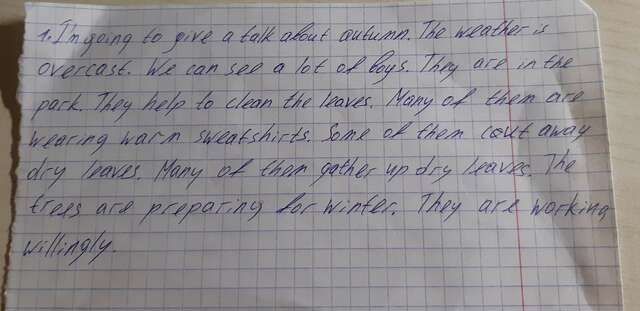 1. I'm going to give a talk about autumn. The weather is
overcast. We can see a lot of boys. They are in the
park. They help to clean the leaves. Many of them are
wearing warm sweatshirts. Some of them cart away
dry leaves. Many of them gather up dry leaves. The
trees are preparing for winter. They are working
willingly.